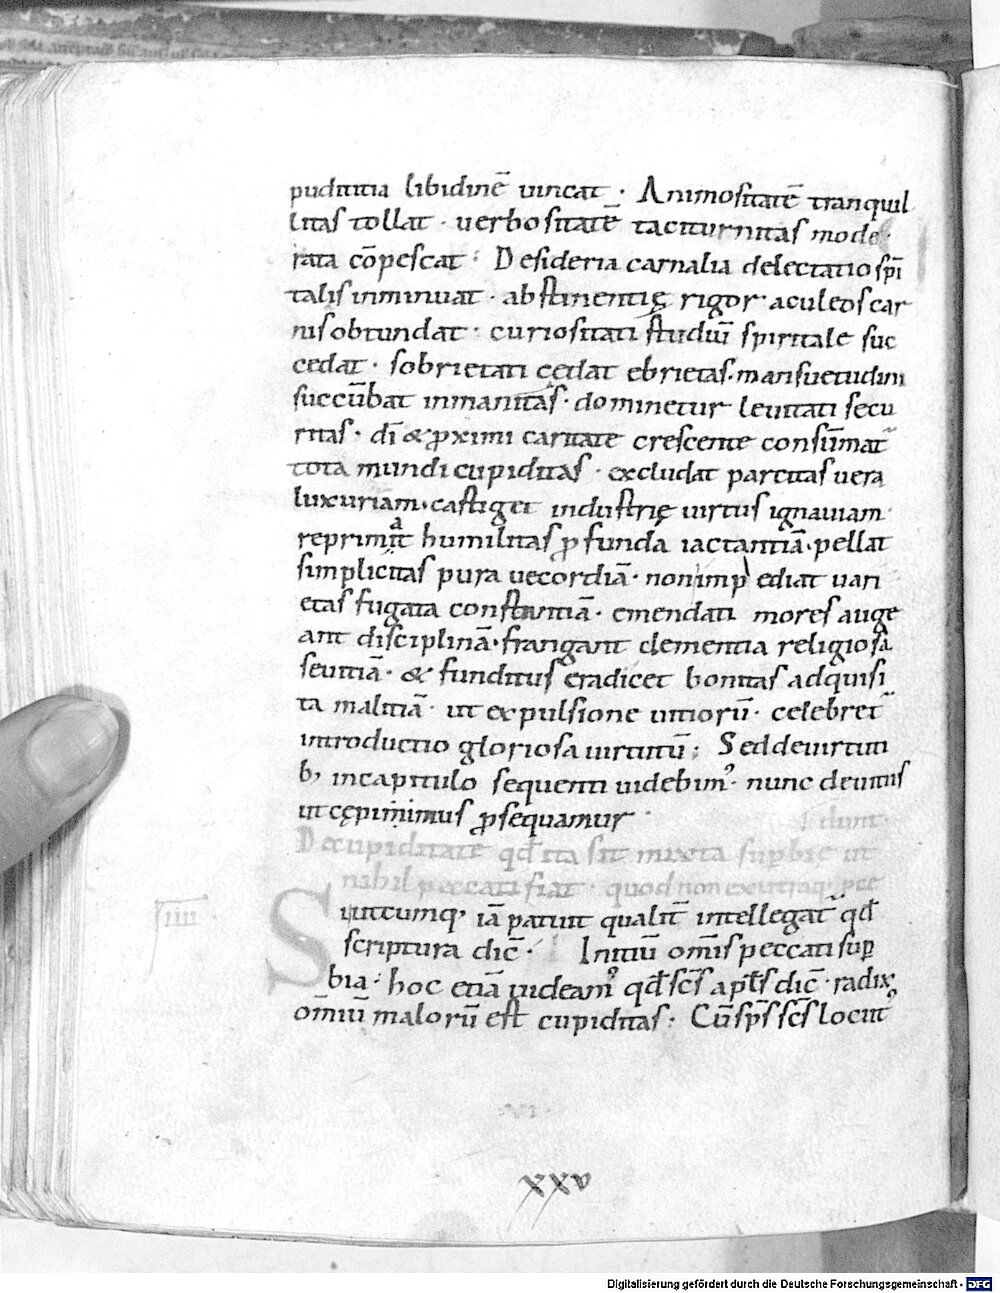 pudititia libidinē uincat · Animositatē tranquil
litas tollat · uerbositatē taciturnitas mode
rata cōpescat : Desideria carnalia delectatio spī
talis inminuat · abstinentię rigor aculeos car
nis obtundat · curiositati studiū spiritale suc
cedat · sobrietati cedat ebrietas · mansuetudini
succūbat inmanitas · dominetur leuitati secu
ritas · dī & ꝓximi caritate crescente consūmat̄
tota mundi cupiditas · excludat parcitas uera
luxuriam · castiget industrię uirtus ignauiam ·
reprimat humilitas ꝓfunda iactantiā · pellat
simplicitas pura uecordiā · non impediat uari
etas fugata constantiā · emendati mores auge
ant disciplinā · frangant clementia religiosa
seuitiā · & funditus eradicet bonitas adquisi
ta malitiā · ut expulsione uitiorū · celebret̄
introductio gloriosa uirtutū ; Sed de uirtuti
b; in capitulo sequenti uidebimꝰ · nunc de uitiis
ut cępimus ꝓsequamur ·
De cupiditate qđ ita sit mixta supbie ut
nihil peccati fiat · quod non ex utraq; pce
dunt ·
IIII
Sicut cumq; iā patuit qualit̄ intellegat̄ qđ
scriptura dic̄ · Initiū om̄is peccati sup
bia · hoc etiā uideamꝰ qđ sc̄s apłs dic̄ · radix
om̄iū malorū est cupiditas : Cū sp̄s sc̄s locut
VI
XXV
Digitalisierung gefördert durch die Deutsche Forschungsgemeinschaft - DFG